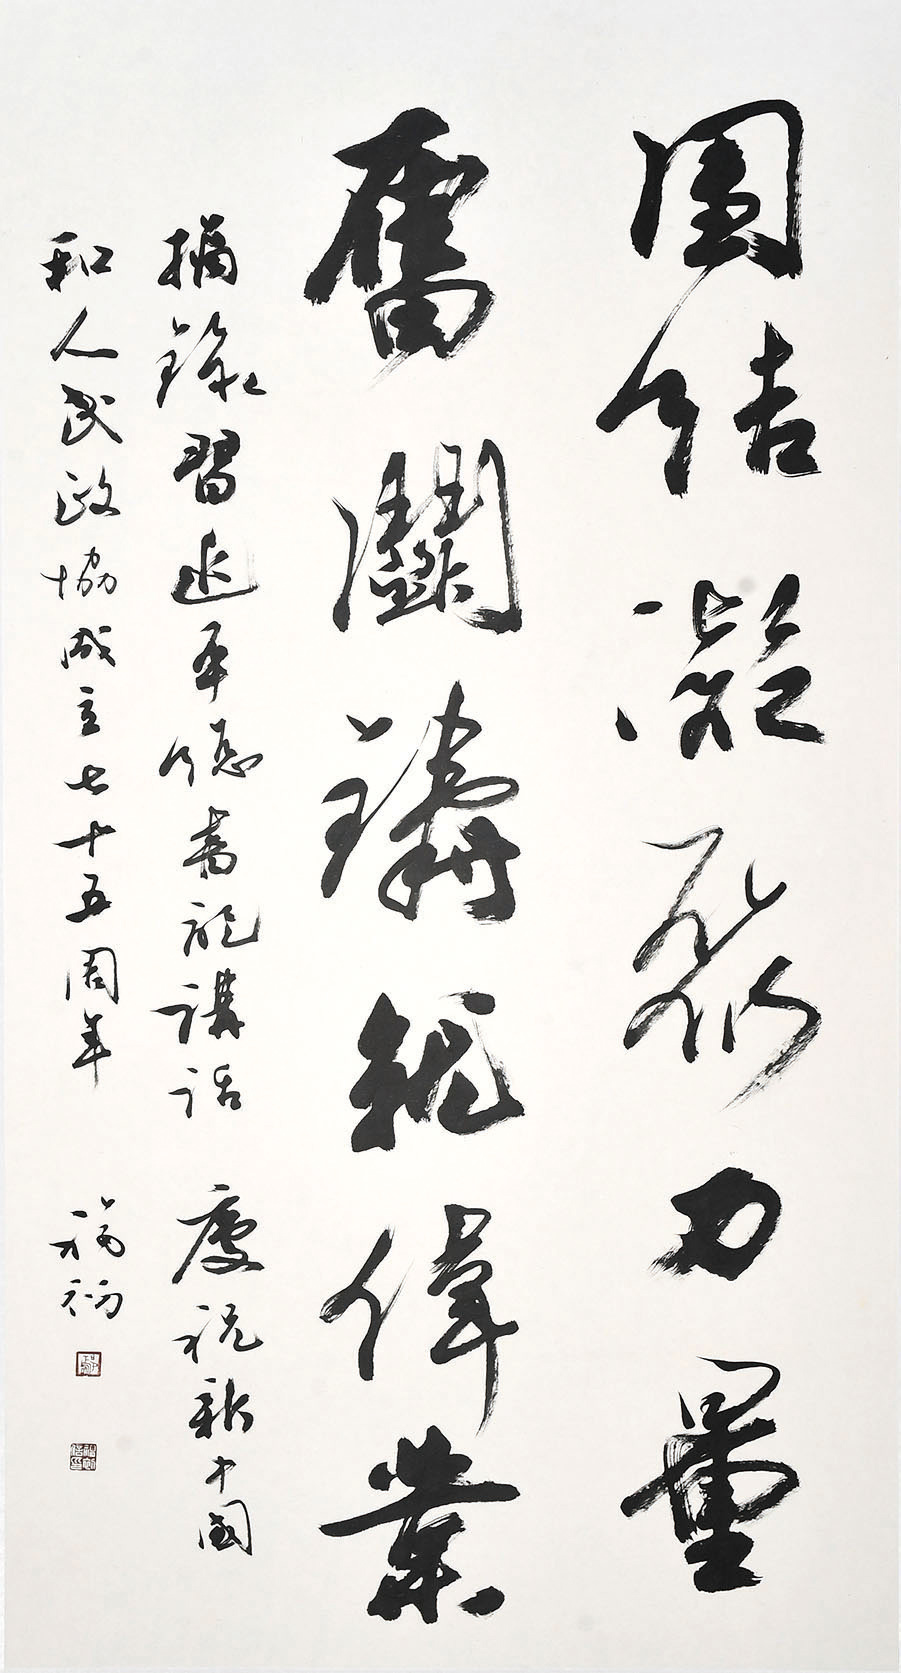 團結凝聚力量
奮鬭鑄就偉業
摘錄習近平總書記講話 慶祝新中國
和人民政協成立七十五周年 福初